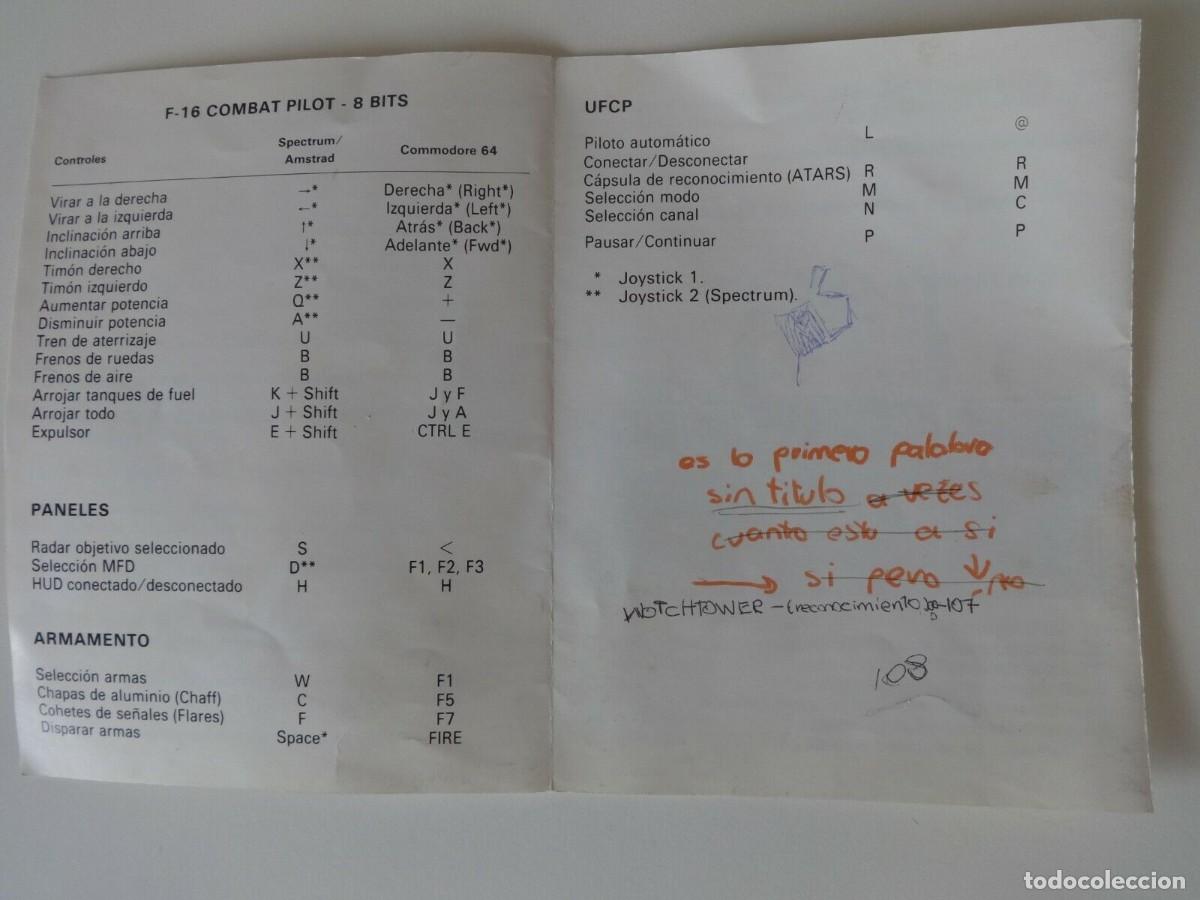 F-16 COMBAT PILOT - 8 BITS
Controles Spectrum/ Amstrad Commodore 64
Virar a la derecha →* Derecha* (Right*)
Virar a la izquierda ←* Izquierda* (Left*)
Inclinación arriba ↑* Atrás* (Back*)
Inclinación abajo ↓* Adelante* (Fwd*)
Timón derecho X** X
Timón izquierdo Z** Z
Aumentar potencia Q** +
Disminuir potencia A** —
Tren de aterrizaje U U
Frenos de ruedas B B
Frenos de aire B B
Arrojar tanques de fuel K + Shift J y F
Arrojar todo J + Shift J y A
Expulsor E + Shift CTRL E
PANELES
Radar objetivo seleccionado S <
Selección MFD D** F1, F2, F3
HUD conectado/desconectado H H
ARMAMENTO
Selección armas W F1
Chapas de aluminio (Chaff) C F5
Cohetes de señales (Flares) F F7
Disparar armas Space* FIRE
UFCP
Piloto automático
Conectar/Desconectar L @
Cápsula de reconocimiento (ATARS) R R
Selección modo M M
Selección canal N C
Pausar/Continuar P P
* Joystick 1.
** Joystick 2 (Spectrum).
es lo primero palabra
sin titulo a vezes
cuanto esto a si
→ si pero ↓
WOTCHTOWER - (reconocimiento) 107
108
todocoleccion